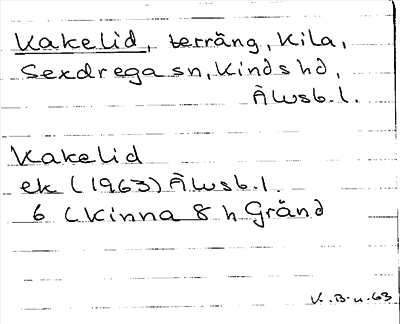 Kakelid, terräng, Kila,
Sexdrega sn, Kinds hd,
Älvsb. l.
Kakelid
ek (1963) Älvsb. l.
6 C Kinna 8 h Gränd
V. B-u -63